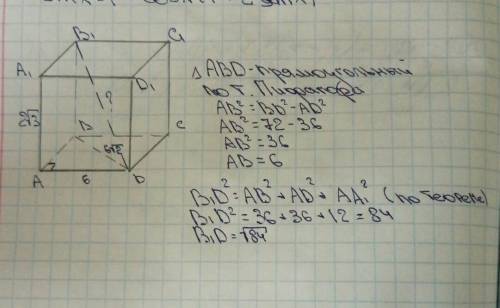 B₁
C₁
A₁
D₁
?
2√3
B
C
6√2
A
6
D
△ ABD - прямоугольный
по т. Пифагора
AB² = BD² - AD²
AB² = 72 - 36
AB² = 36
AB = 6
B₁D² = AB² + AD² + AA₁² (по теореме)
B₁D² = 36 + 36 + 12 = 84
B₁D = √84